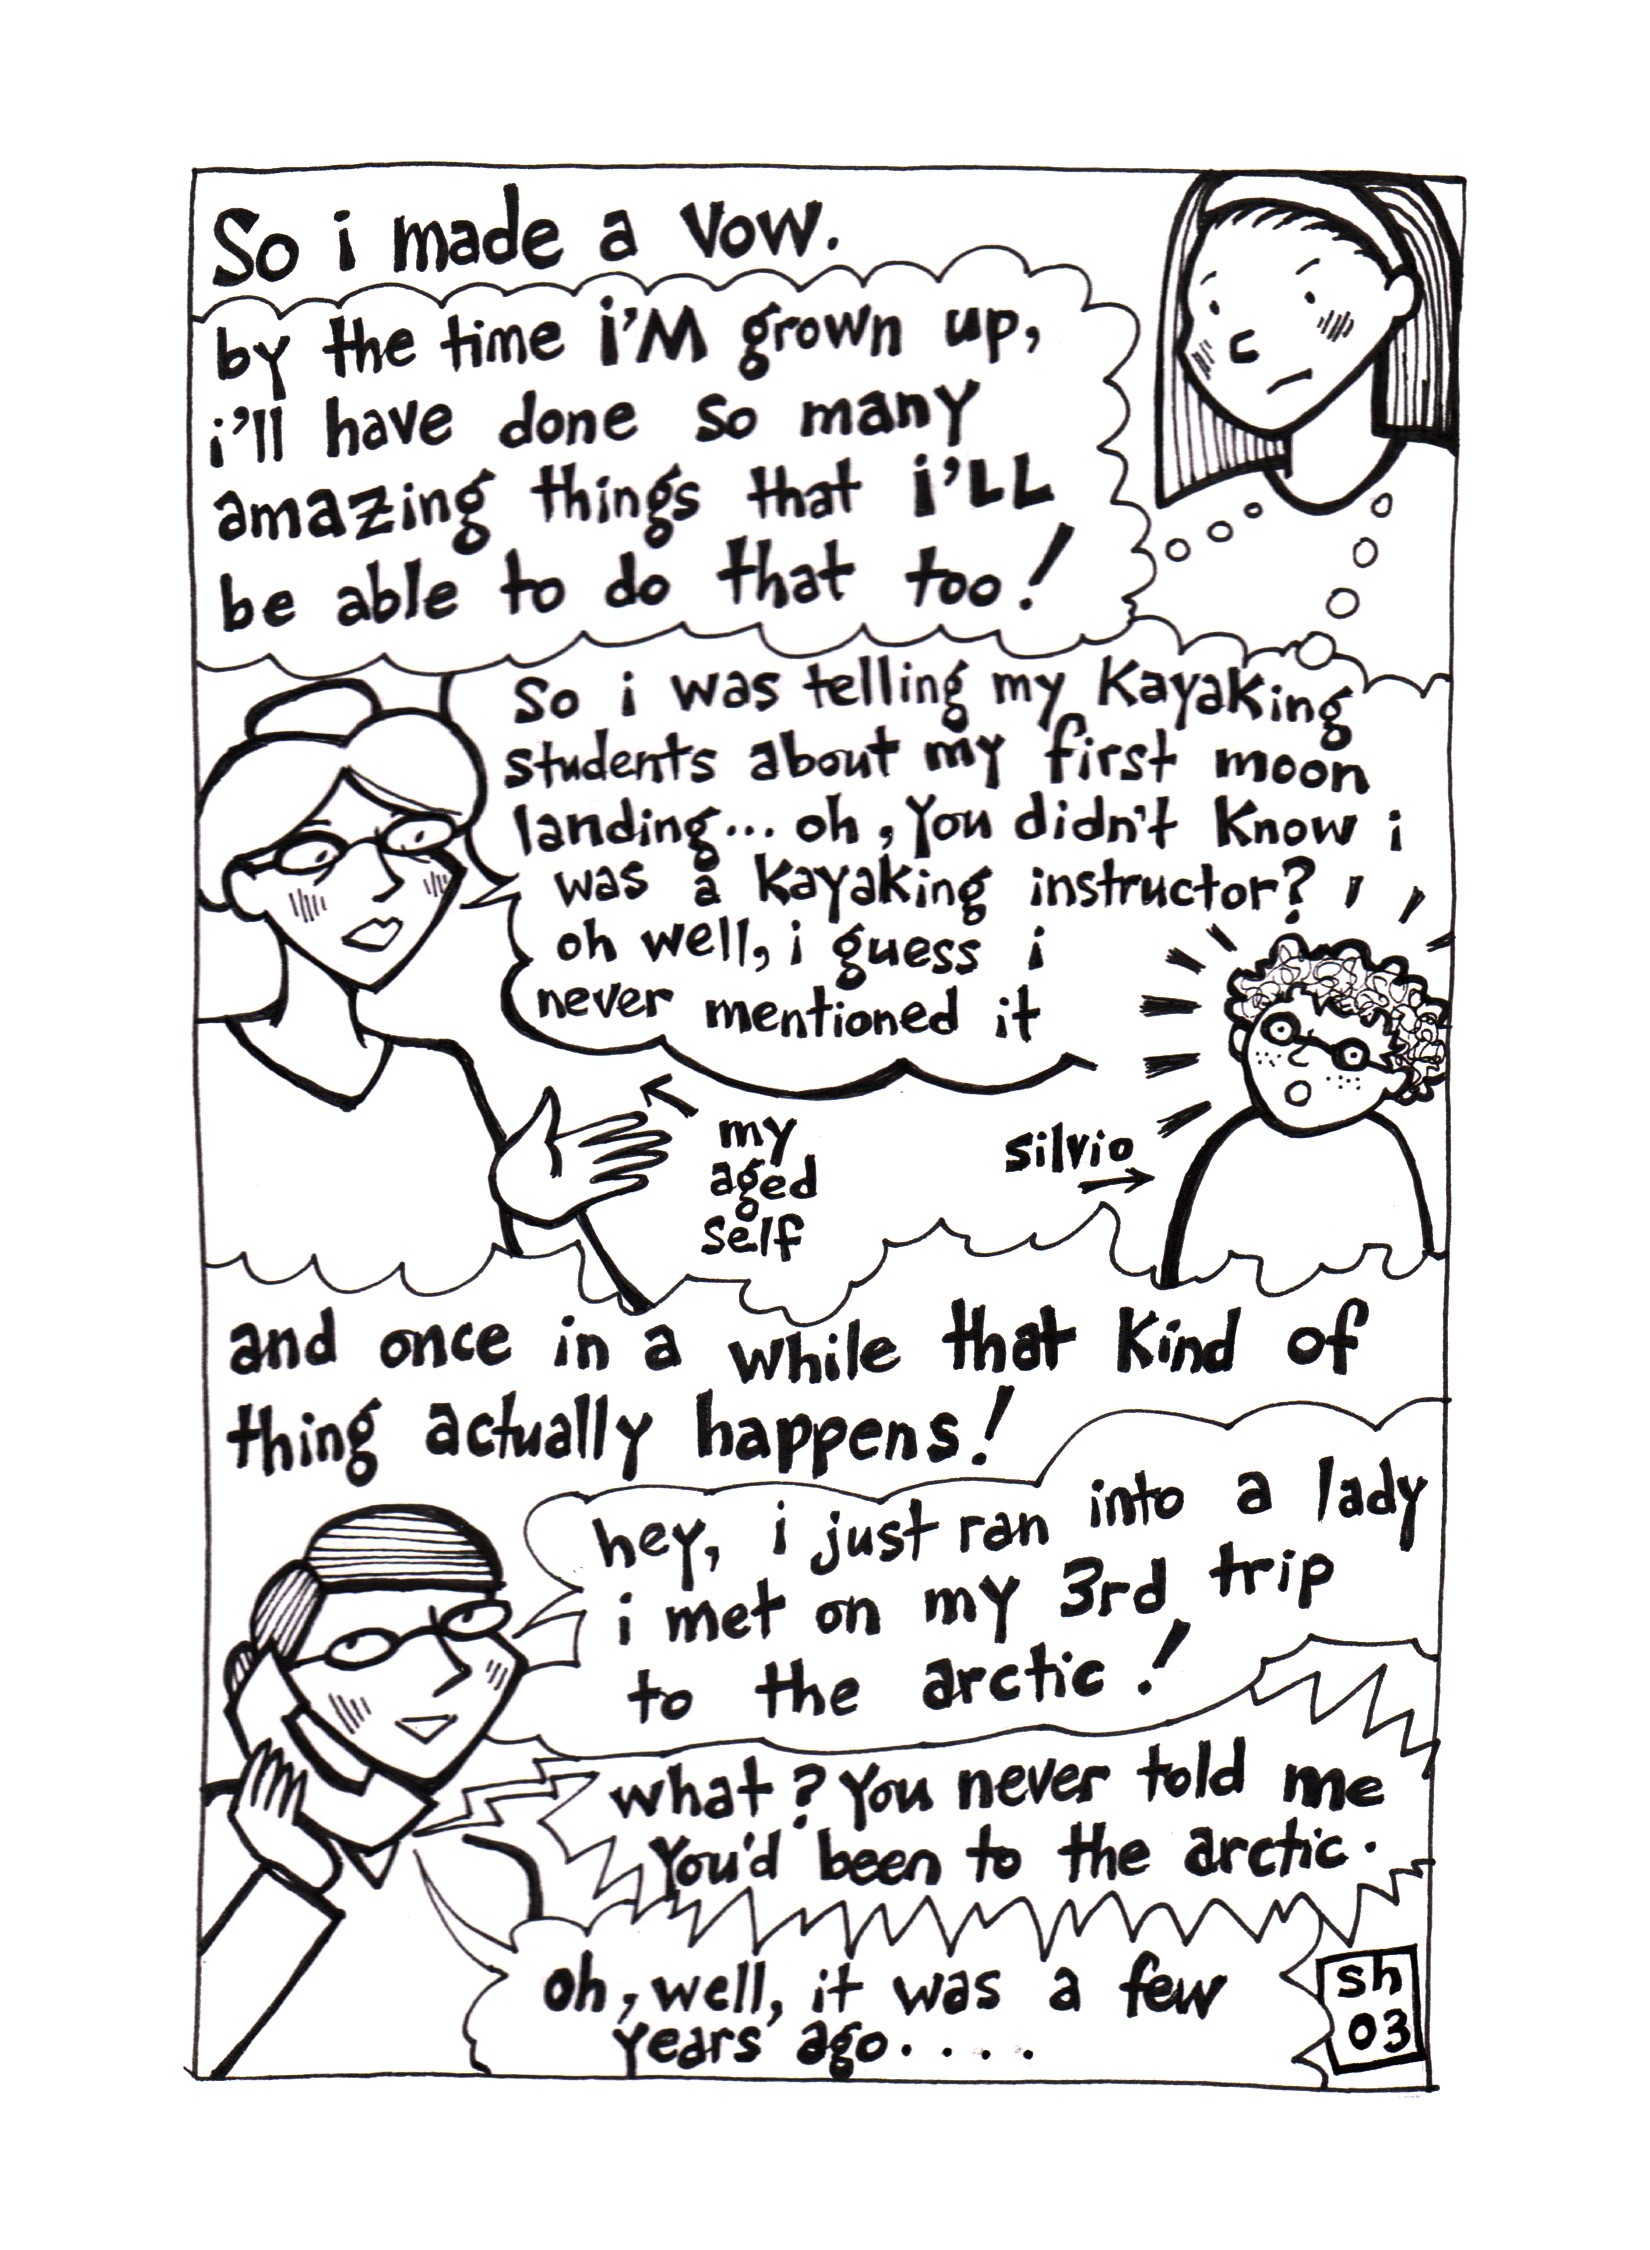 So i made a vow.
by the time i'M grown up,
i'll have done so many
amazing things that i'LL
be able to do that too!
So i was telling my Kayaking
students about my first moon
landing... oh, You didn't Know i
was a Kayaking instructor?
oh well, i guess i
never mentioned it
my
aged
self
silvio
and once in a while that Kind of
thing actually happens!
hey, i just ran into a lady
i met on my 3rd trip
to the arctic!
what? You never told me
You'd been to the arctic.
oh, well, it was a few
years ago....
sh
03